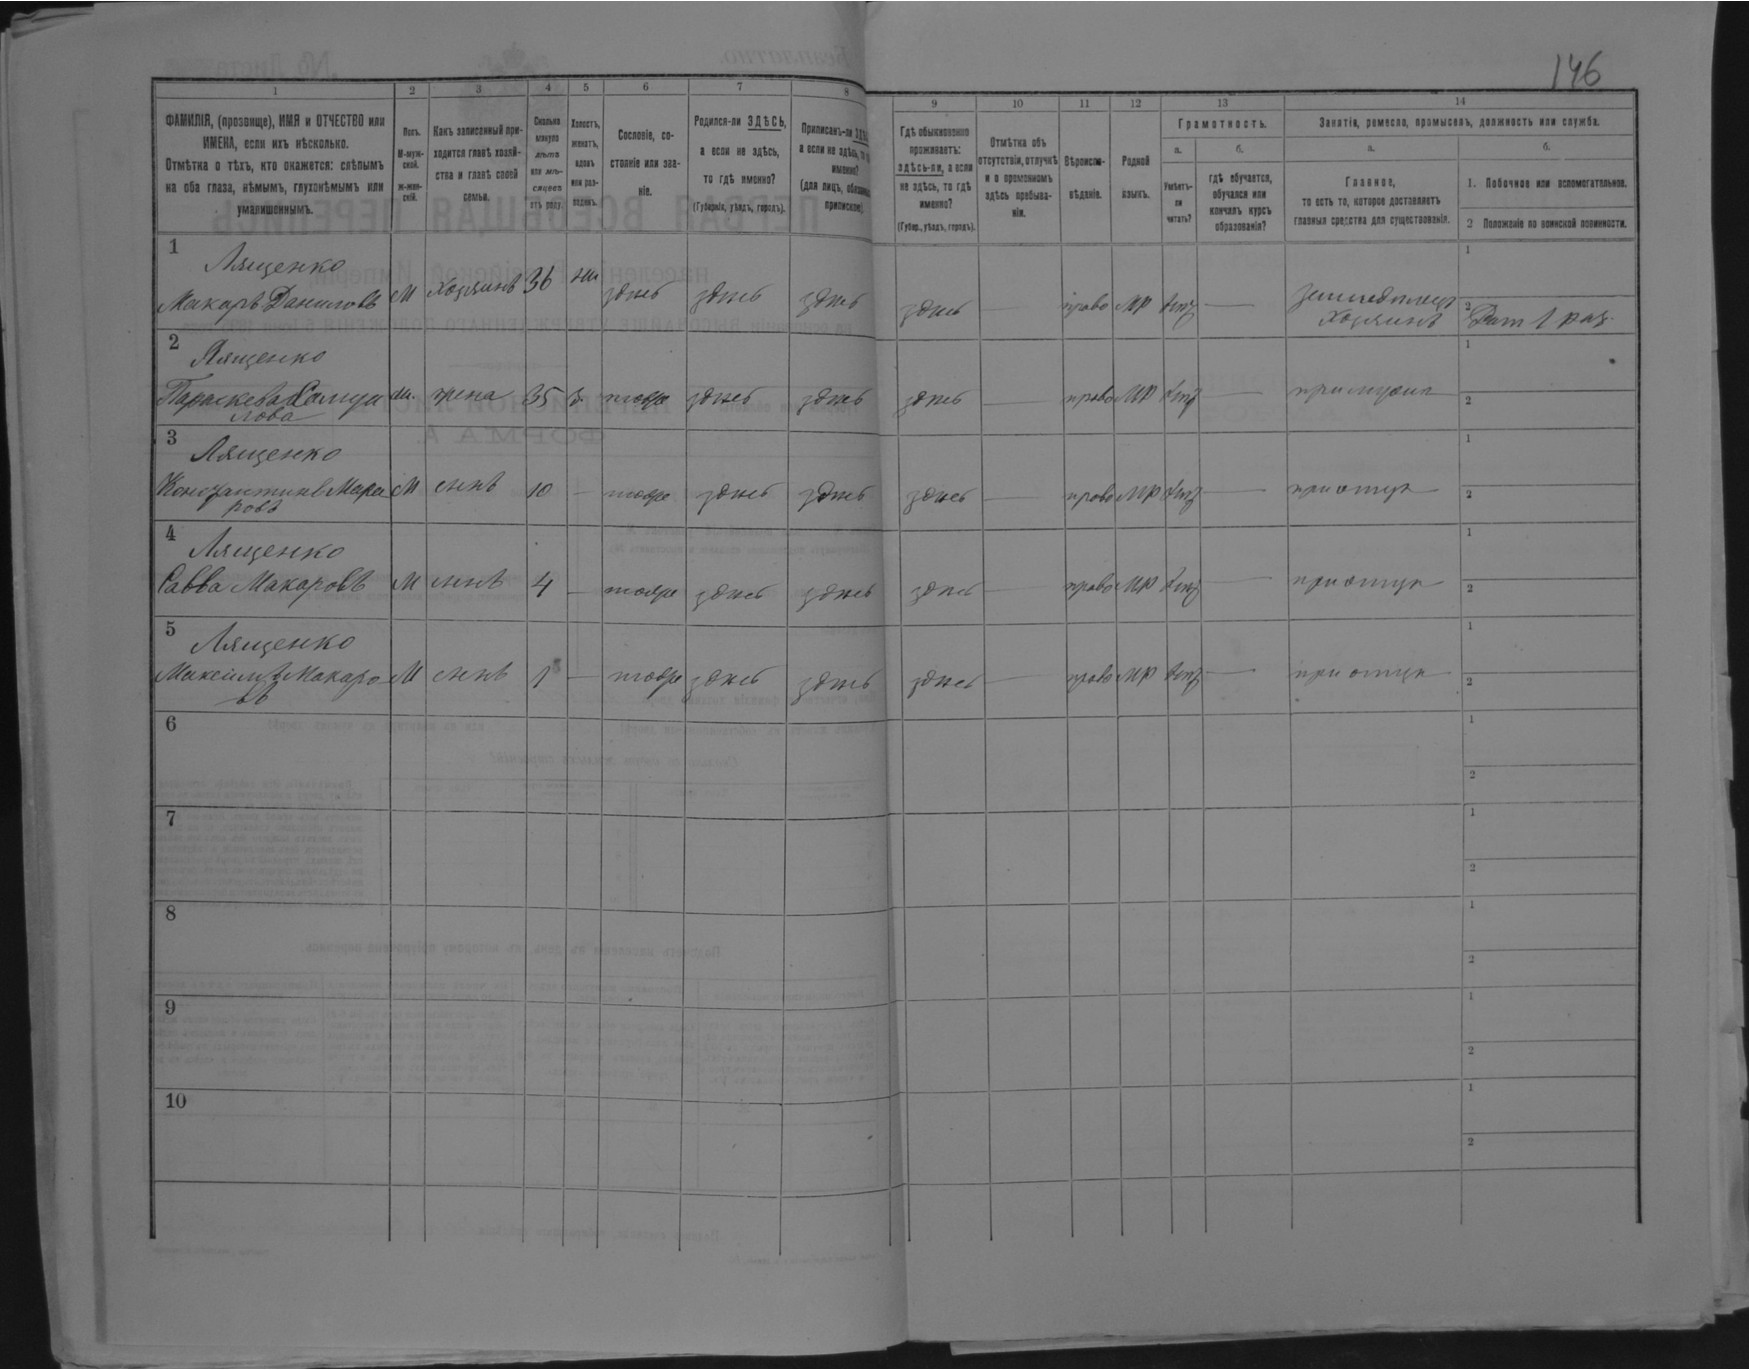 146
1 2 3 4 5 6 7 8 9 10 11 12 13 14
ФАМИЛІЯ, (прозвище), ИМЯ и ОТЧЕСТВО или
ИМЕНА, если ихъ нѣсколько.
Отмѣтка о тѣхъ, кто окажется: слѣпымъ
на оба глаза, нѣмымъ, глухонѣмымъ или
умалишеннымъ.
Полъ.
М-муж-
ской.
ж-жен-
скій.
Какъ записанный при-
ходится главѣ хозяй-
ства и главѣ своей
семьи.
Сколько
минуло
лѣтъ
или мѣ-
сяцевъ
отъ роду.
Холостъ,
женатъ,
вдовъ
или раз-
веденъ.
Сословіе, со-
стояніе или зва-
ніе.
Родился-ли ЗДѢСЬ,
а если не здѣсь,
то гдѣ именно?
(Губернія, уѣздъ, городъ).
Приписанъ-ли
а если не здѣсь,
именно?
(для лицъ,
Гдѣ обыкновенно
проживаетъ:
здѣсь-ли, а если
не здѣсь, то гдѣ
именно?
(Губер., уѣздъ, городъ).
Отмѣтка объ
отсутствіи, отлучкѣ
и о временномъ
здѣсь пребыва-
ніи.
Вѣроиспо-
вѣданіе.
Родной
языкъ.
Грамотность.
а.
Умѣетъ-
ли
читать?
б.
гдѣ обучается,
обучался или
кончилъ курсъ
образованія?
Занятія, ремесло, промыселъ, должность или служба.
а.
Главное,
то есть то, которое доставляетъ
главныя средства для существованія.
б.
1. Побочное или вспомогательное.
2 Положеніе по воинской повинности.
1
Лященко
Макаръ Даниловъ М Хозяинъ 36 здѣсь здѣсь здѣсь здѣсь — право МР — земледѣлецъ
Хозяинъ
1
2
2
Лященко
Параскева Самуи
лова жена 35 здѣсь здѣсь здѣсь — право МР — при мужѣ
1
2
3
Лященко
Константинъ Мака
ровъ М сынъ 10 — здѣсь здѣсь здѣсь — право МР — при отцѣ
1
2
4
Лященко
Савва Макаровъ М сынъ 4 — здѣсь здѣсь здѣсь — право МР — при отцѣ
1
2
5
Лященко
Макаро-
въ М сынъ 1 — здѣсь здѣсь здѣсь — право МР — при отцѣ
1
2
6
1
2
7
1
2
8
1
2
9
1
2
10
1
2